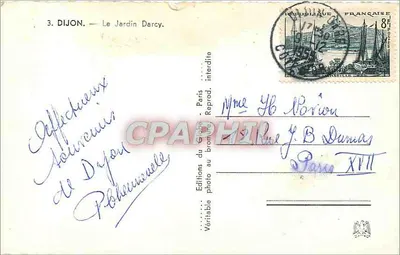 3. DIJON. — Le Jardin Darcy.
Affectueux
souvenirs
de Dijon
Editions du Griffon - Paris
Véritable photo au bromure - Reprod. interdite
CPARHIF
FRANÇAISE
8F
Mme H
8 Rue J B Dumas
Paris XVII